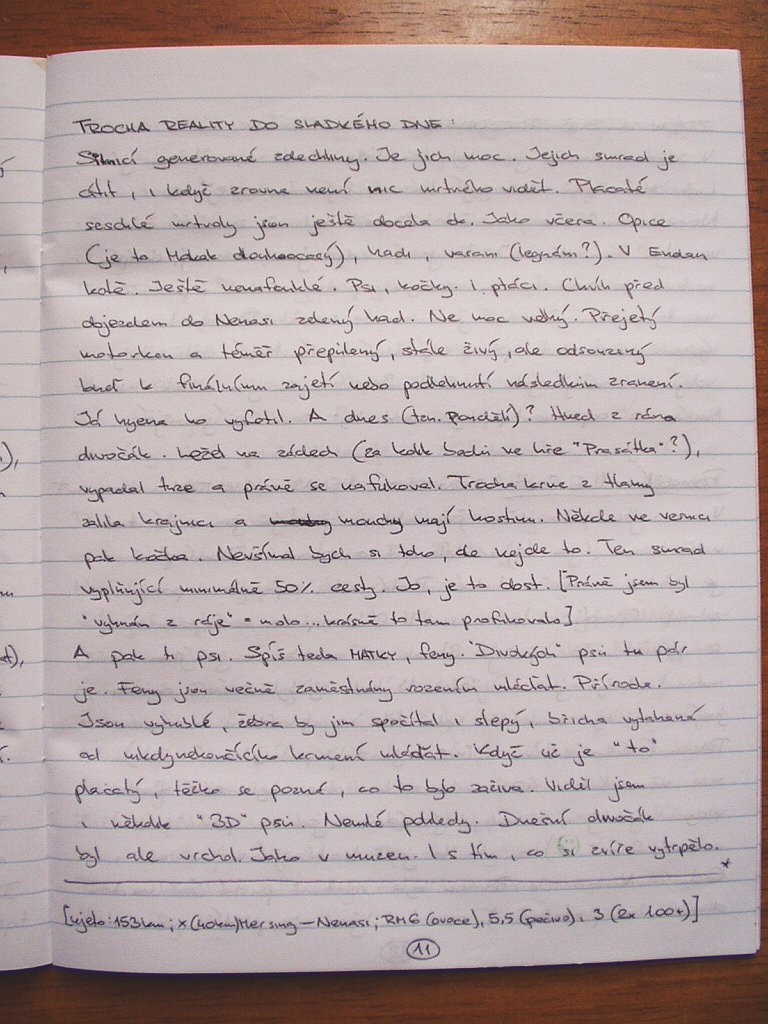 TROCHA REALITY DO SLADKÉHO DNE:
Silnicí generované zdechliny. Je jich moc. Jejich smrad je
cítit, i když zrovna není nic mrtvého vidět. Placaté
seschlé mrtvoly jsou ještě docela ok. Jako včera. Opice
(je to Makak dlouhoocasý), hadi, varan (leguán?). V Endau
kotě. Ještě nenafouklé. Psi, kočky i ptáci. Chvíli před
objezdem do Nenasi zelený had. Ne moc velký. Přejetý
motorkou a téměř přepůlený, stále živý, ale odsouzený
buď k finálnímu zajetí nebo podlehnutí následkům zranení.
Já hyena ho vyfotil. A dnes (tzn. Pondělí)? Hned z rána
divočák. Ležel na zádech (za kolik bodů ve hře "Prasátka"?),
vypadal tuze a právě se nafukoval. Trocha krve z tlamy
zalila krajnici a mouchy mají hostinu. Někde ve vesnici
pak kočka. Nevšímal bych si toho, ale nejde to. Ten smrad
vyplňující minimálně 50% cesty. Jo, je to dost. [Právě jsem byl
"vyhnán z ráje" - molo... krásně to tam profukovalo]
A pak ti psi. Spíš teda MATKY, feny. "Divokých" psů tu pár
je. Feny jsou večně zaměstnány rozením mláďat. Příroda.
Jsou vyhublé, žebra by jim spočítal i slepý, břicha vytahaná
od nikdynekončícího krmení mláďat. Když už je "to"
placatý, těžko se pozná, co to bylo zaživa. Viděl jsem
i několik "3D" psů. Nemilé pohledy. Dnešní divočák
byl ale vrchol. Jako v muzeu. I s tím, co si zvíře vytrpělo.
*
[ujeto: 153km; x(40km)Mersing–Nenasi; RM6 (ovoce), 5,5 (pečivo), 3 (2x 100+)]
11